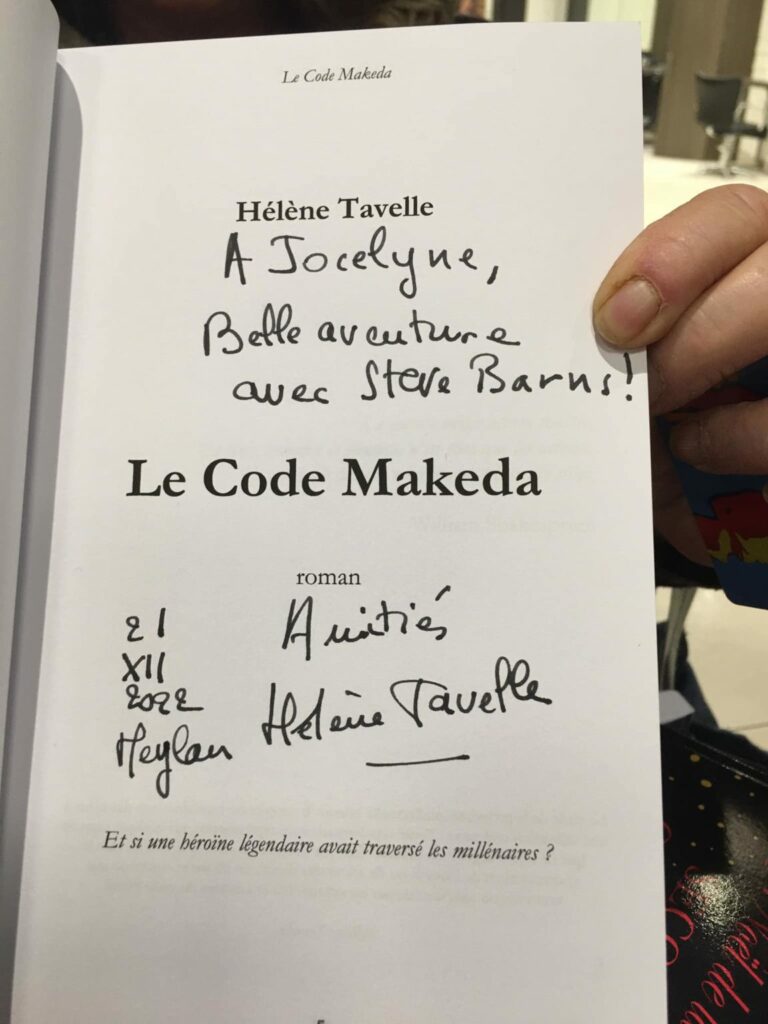 Le Code Makeda
Hélène Tavelle
A Jocelyne,
Belle aventure
avec Steve Barns!
Le Code Makeda
roman
21
XII
2022
Meylan
Amitiés
Hélène Tavelle
Et si une héroïne légendaire avait traversé les millénaires ?
5
Noël de